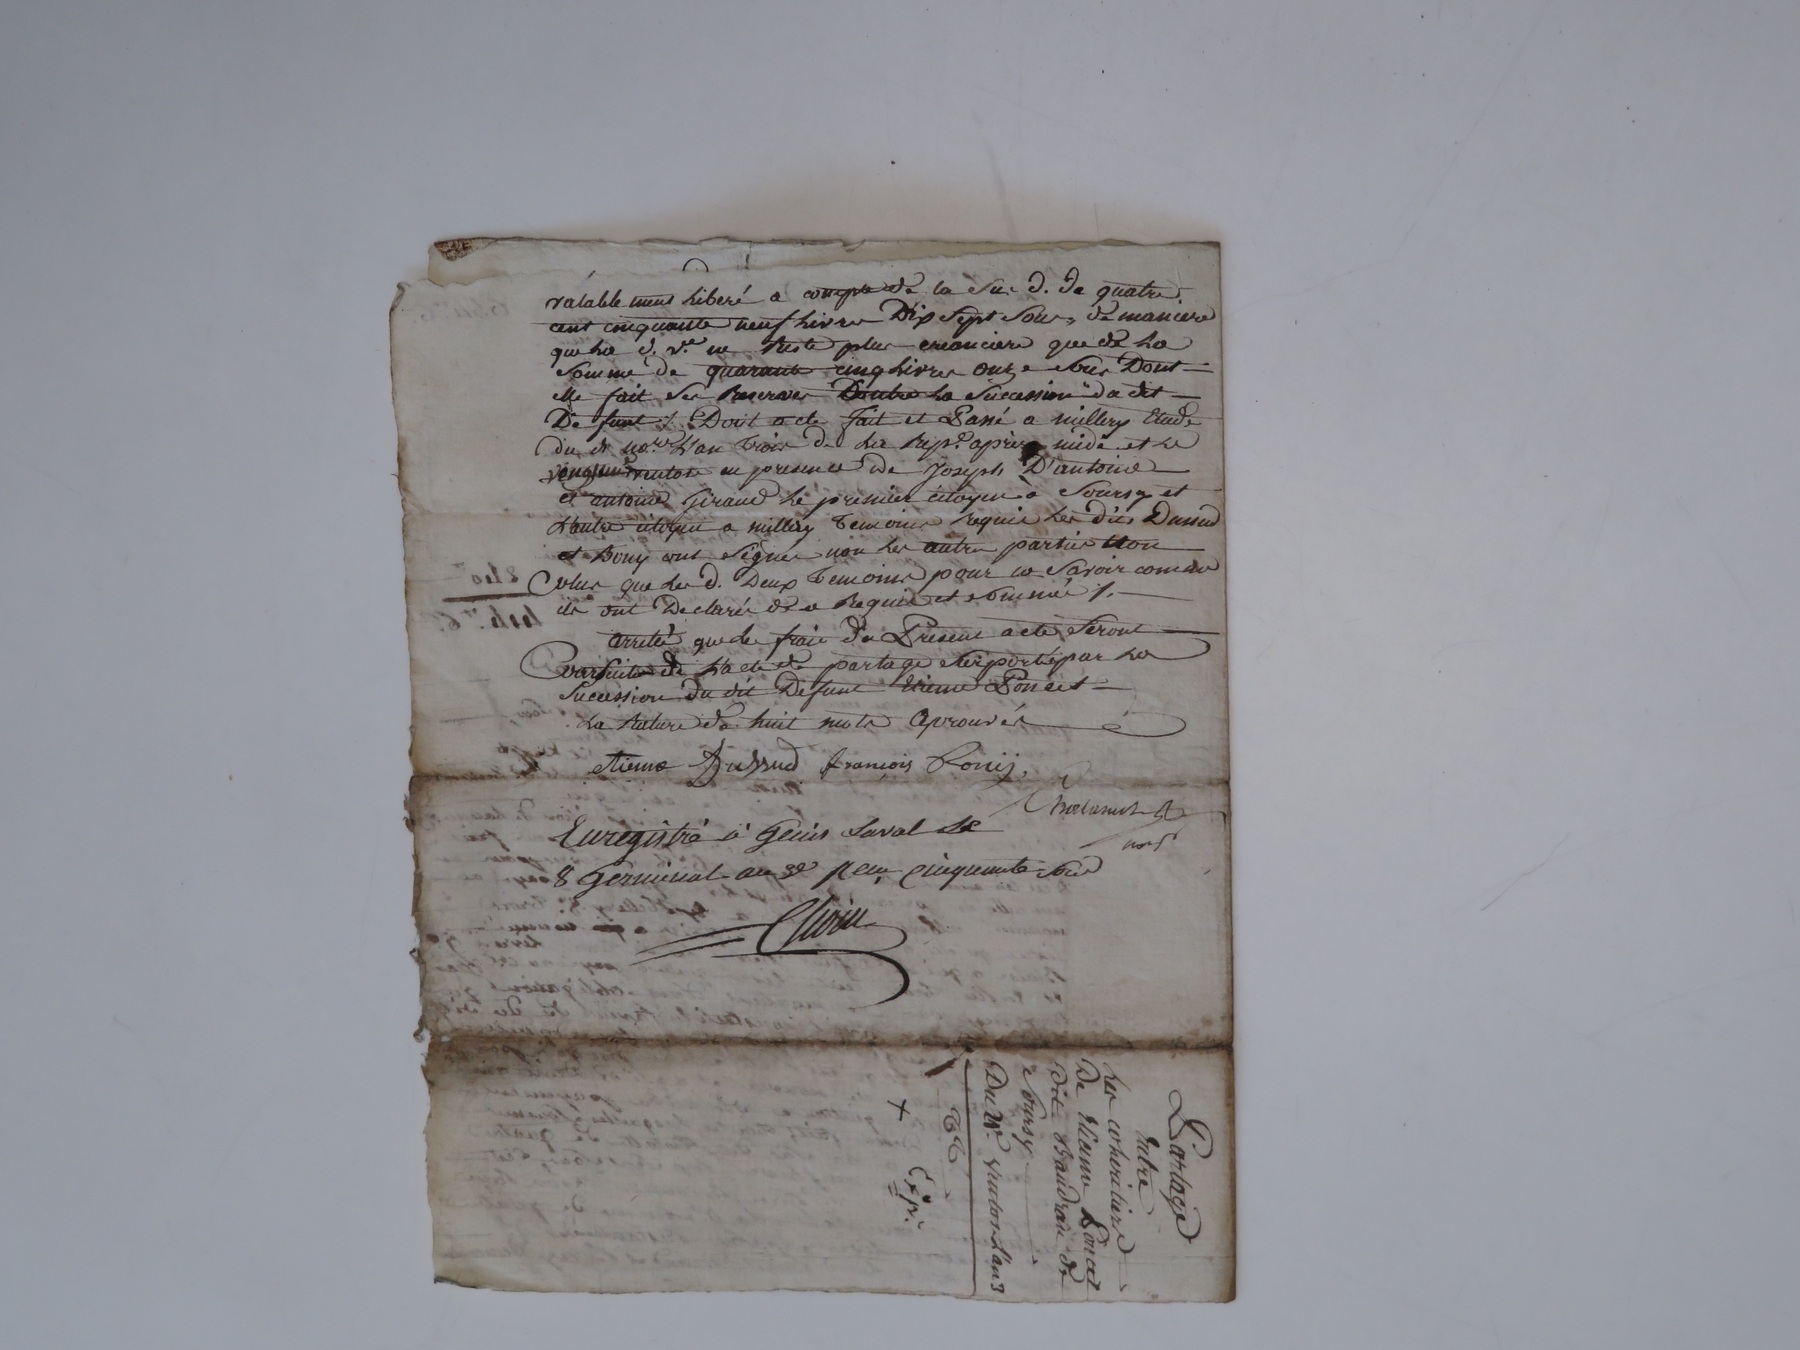 valablement liberé a compte de la su. d. de quatre
cent cinquante neuf livres Dix Sept Sous, de maniere
que la d. v.e ne Reste plus creanciere que de la
Somme de quarante cinq livres onze Sous Dont
elle fait Ses Reserves Contre la Succession du dit
Defunt ∕. Dont acte fait et Passé a millery Etude
du d. no.re l'an trois de la Rep.e après midi et le
ventose en presence de Joseph D'antoine
et antoine Giraud le premier citoyen à Soursy et
l'autre citoyen a millery Temoins Requis les dits Dussud
et Bony ont Signés non les autre parties non
plus que les d. Deux Temoins pour ne Savoir comme
ils ont Declarés de ce Requis et sommés ∕.
arrêté que les frais du Present acte Seront
de l'acte de partage Suporté par la
Succession du dit Defunt Etienne Poncet
La Rature de huit mots aprouvés
etienne Dussud françois Bonij
Enregistré à Genis Laval le
8 Germinal an 3e reçu cinquante sous
Partage
Entre
Les coheritiers
De Etienne Poncet
dit Baudran de
Soursy
Du ventose l'an 3
Exp.